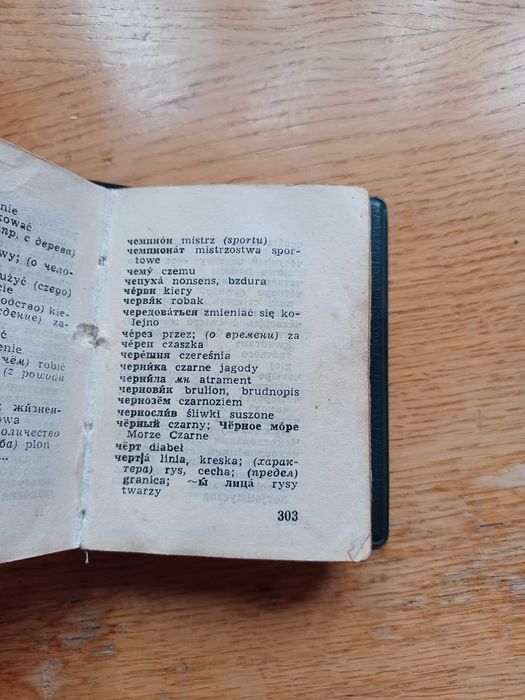 nie
kować
пр, с дерева)
wy; (о чело-
użyć (czego)
cie
водство) kie-
дение) za-
enie
чём) robić
(z powodu
жи́знен-
owa
оличество
ба) plon
чемпио́н mistrz (sportu)
чемпиона́т mistrzostwa spor-
towe
чему́ czemu
чепуха́ nonsens, bzdura
че́рви kiery
червя́к robak
чередова́ться zmieniać się ko-
lejno
че́рез przez; (о времени) za
че́реп czaszka
чере́шня czereśnia
черни́ка czarne jagody
черни́ла мн atrament
чернови́к brulion, brudnopis
чернозём czarnoziem
черносли́в śliwki suszone
чёрный czarny; Чёрное мо́ре
Morze Czarne
чёрт diabeł
черт|а́ linia, kreska; (харак-
тера) rys, cecha; (предел)
granica; ~ы́ лица́ rysy
twarzy
303